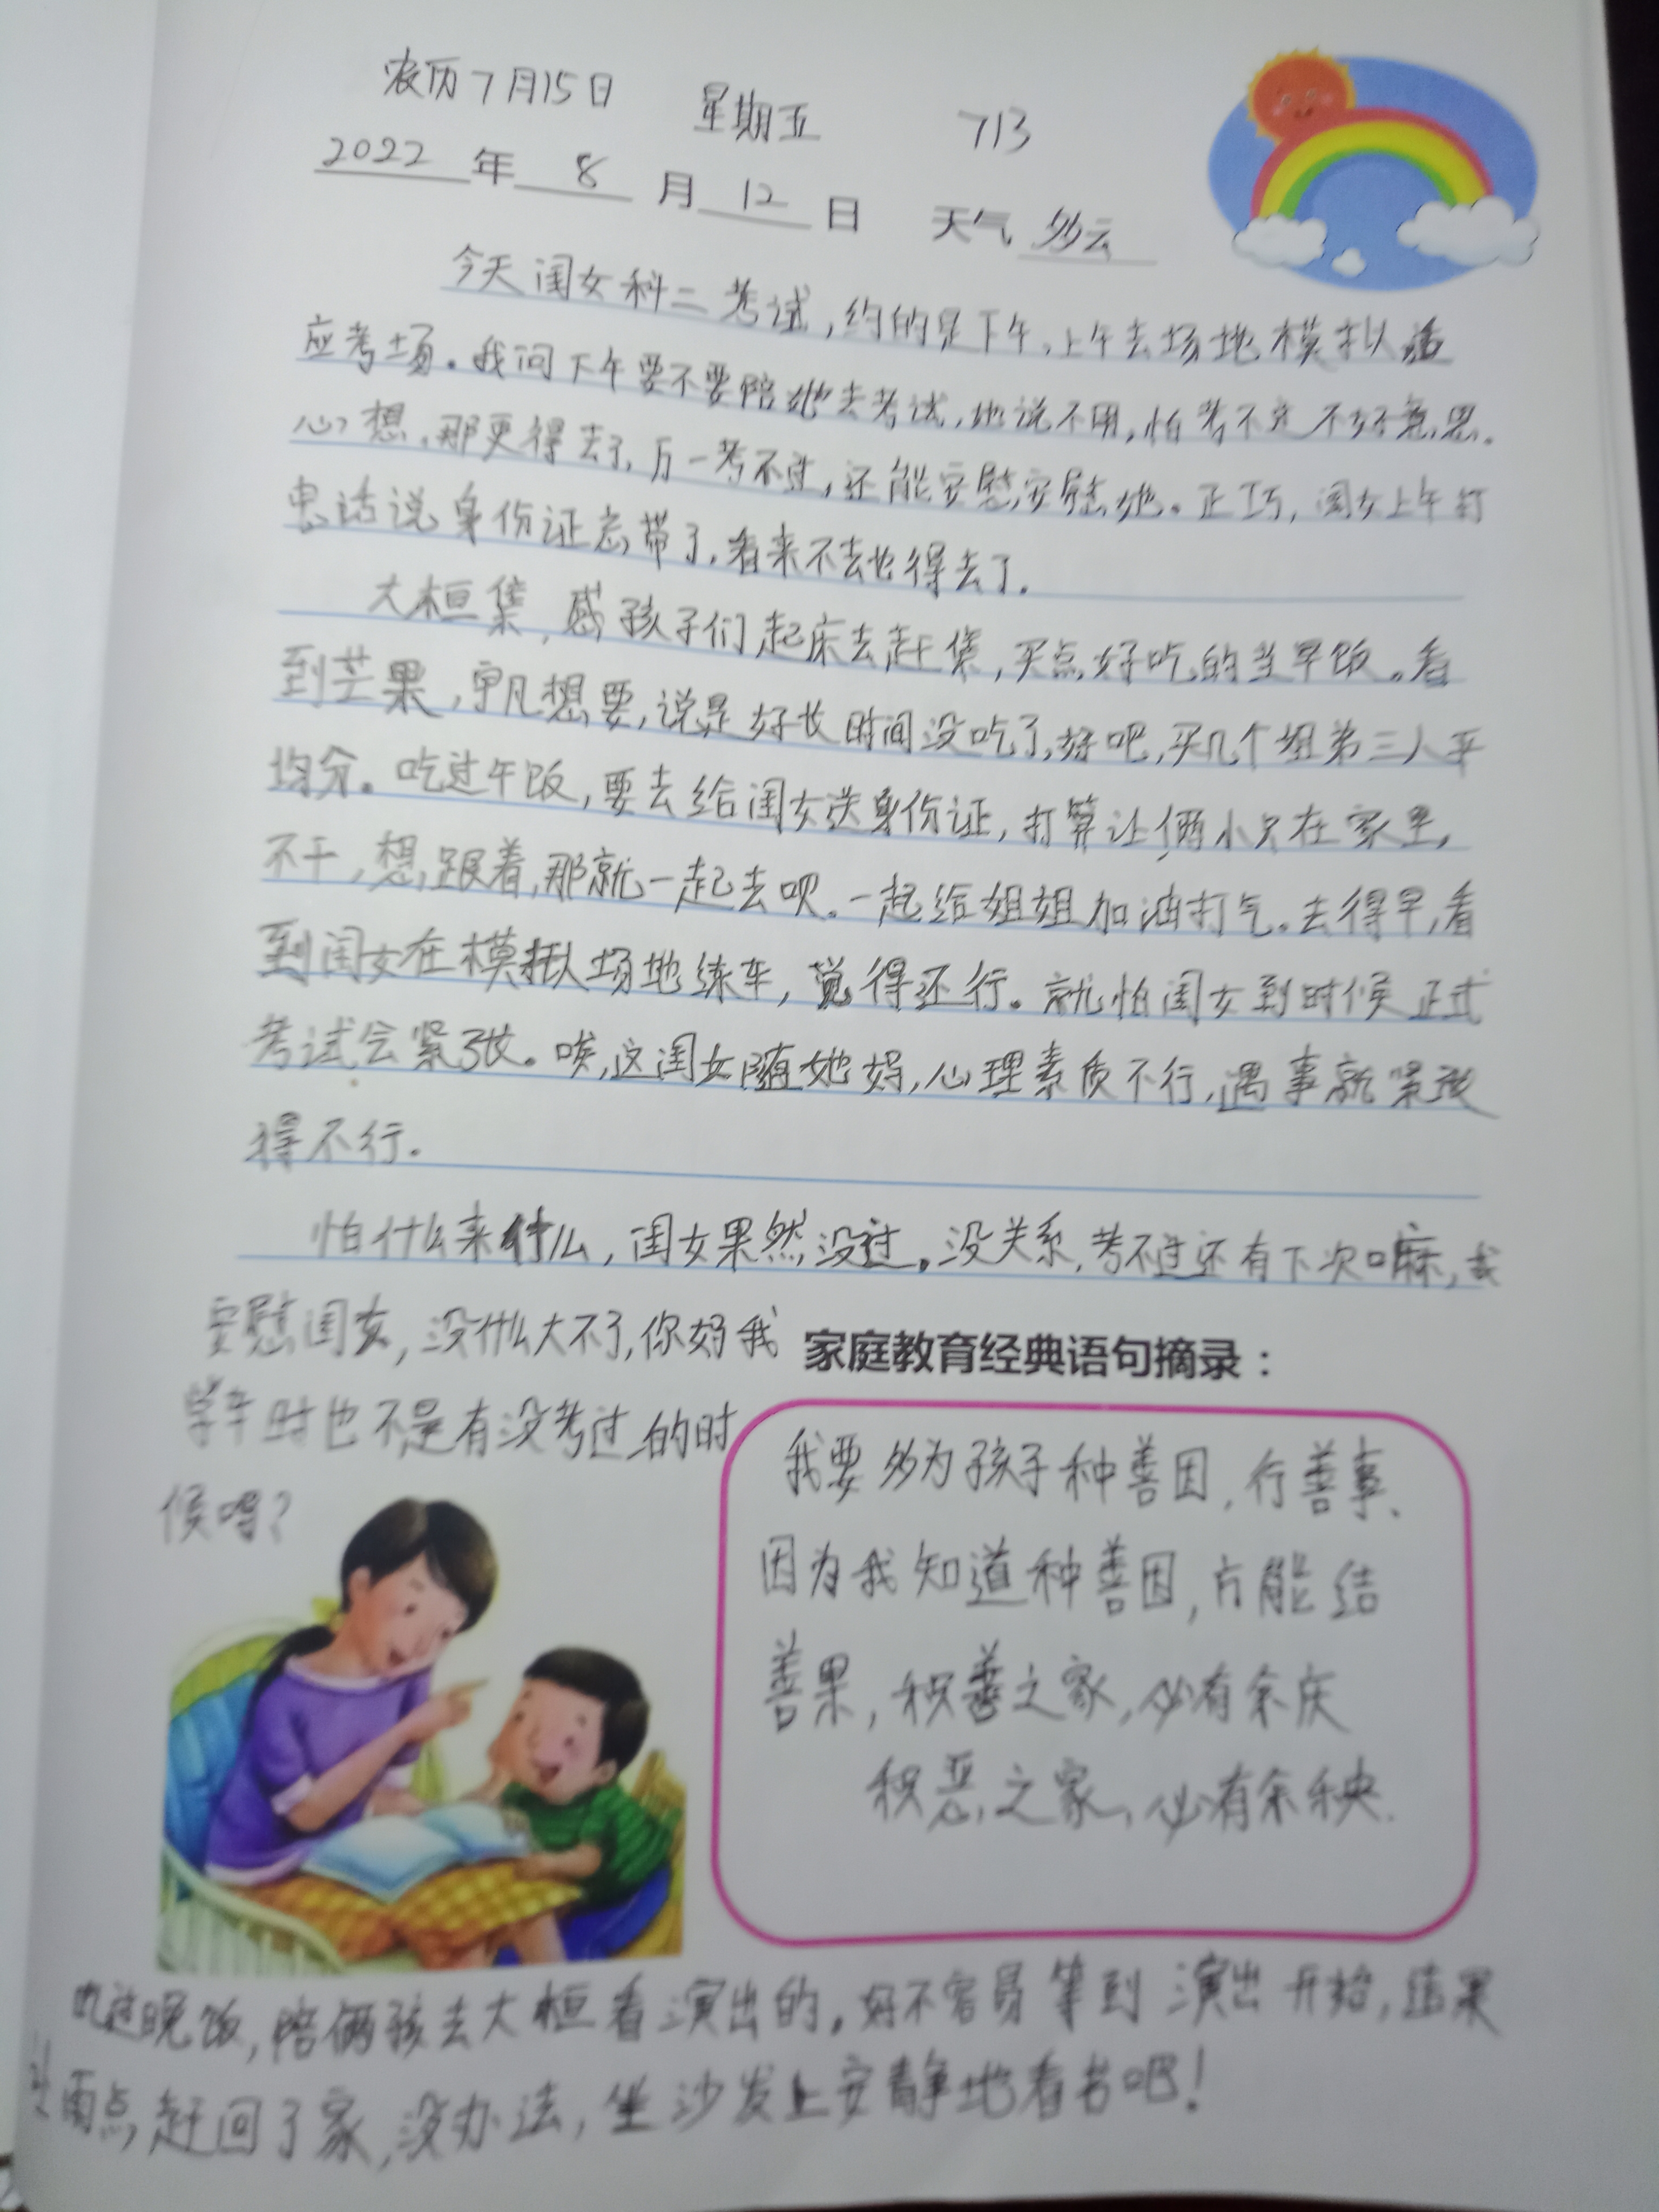 农历7月15日 星期五 713
2022年8月12日 天气多云
今天闺女科二考试,约的是下午,上午去场地模拟适
应考场。我问下午要不要陪她去考试,她说不用,怕考不过不好意思。
心想,那更得去了,万一考不过,还能安慰安慰她。正巧,闺女上午打
电话说身份证忘带了,看来不去也得去了.
大桓集,孩子们起床去赶集,买点好吃的当早饭。看
到芒果,宇凡想要,说是好长时间没吃了,好吧,买几个姐弟三人平
均分。吃过午饭,要去给闺女送身份证,打算让俩小只在家里,
不干,想跟着,那就一起去呗。一起给姐姐加油打气。去得早,看
到闺女在模拟场地练车,觉得还行。就怕闺女到时候正式
考试会紧张。唉,这闺女随她妈,心理素质不行,遇事就紧张
得不行.
怕什么来什么,闺女果然没过。没关系,考不过还有下次嘛,我
安慰闺女,没什么大不了,你妈我
学车时也不是有没考过的时
候吗?
家庭教育经典语句摘录:
我要多为孩子种善因,行善事、
因为我知道种善因,方能结
善果,积善之家,必有余庆
积恶之家,必有余秧.
吃过晚饭,陪俩孩去大桓看演出的。好不容易等到演出开始,结果
雨点,赶回了家,没办法,坐沙发上安静地看书吧!